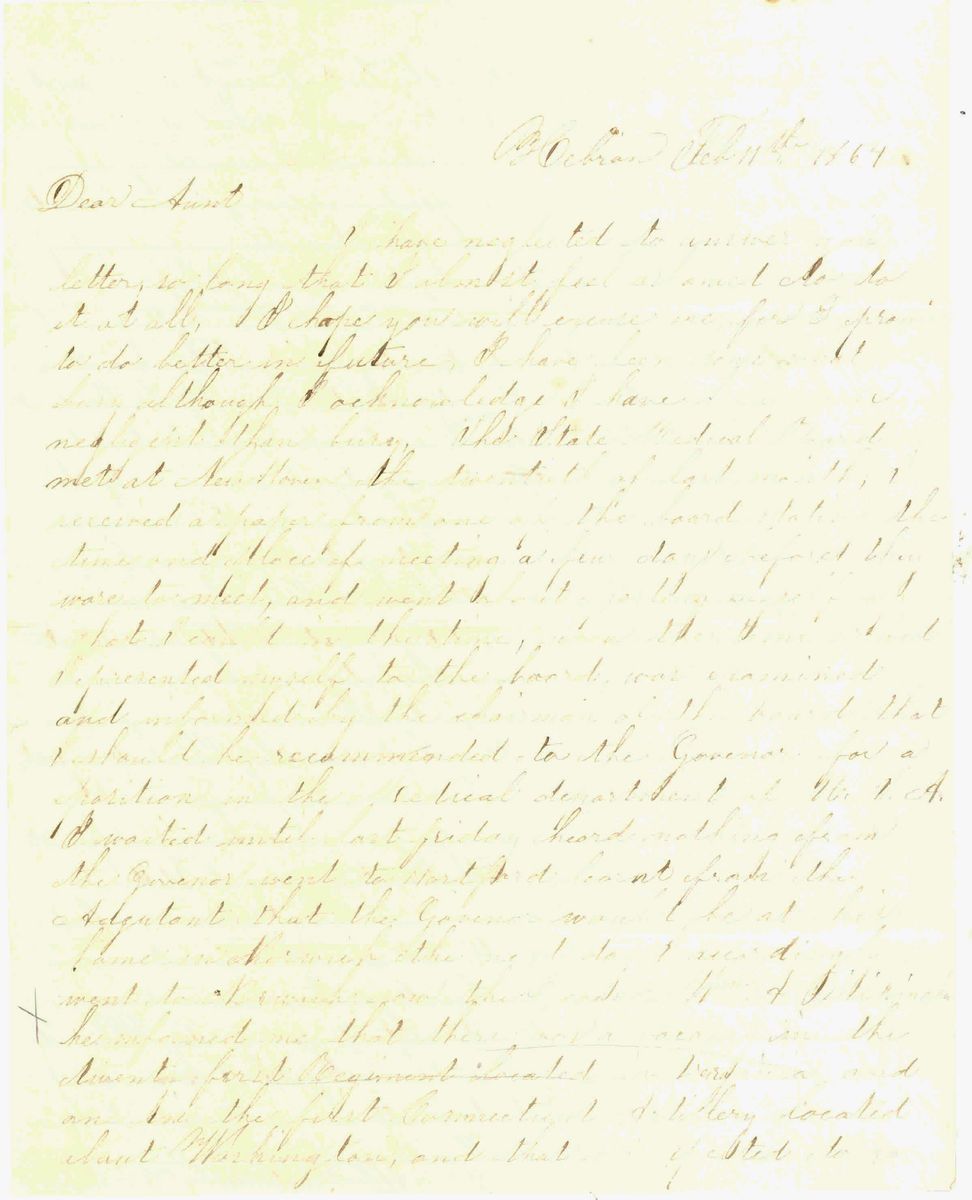 Hebron Feb 11th 1864
Dear Aunt
I have neglected to answer your
letter, so long that I almost feel ashamed to do
it at all, I hope you will excuse me, for I promise
to do better in future, I have been
busy although I acknowledge I have
negligent than busy. The State Medical Board
met at New Haven the twentieth of last month, I
received a paper from one of the board stating the
time and place of meeting a few days before they
ware to meet, and went
what I could in the time,
I presented myself to the board, was examined
and informed by the chairman of the board that
I should be recommended to the Govenor for a
position in the Medical department of U. S. A.
I waited until last friday, heard nothing from
the Govenor went to Hartford learnt from the
Adjutant that the Govenor would be at his
home in Norwich the next day I accordingly
went to Norwich Wm A
he informed me that there was a vacancy in the
Twenty first Regiment located in Virginia, and
one in the first Connecticut Artillery located
about Washington, and that